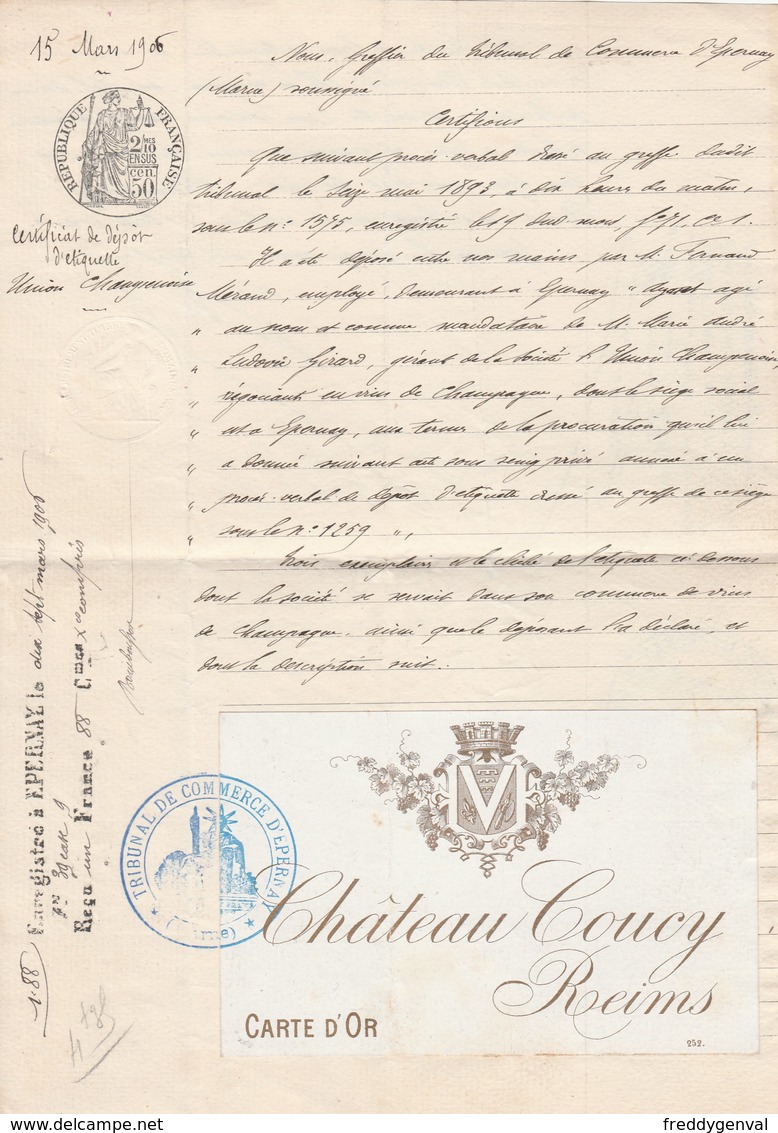 15 Mars 1906
RÉPUBLIQUE FRANÇAISE
2/10 MES
EN SUS
50 cen.
Certificat de dépôt
d'étiquette
Union Champenoise
Nous, Greffier du Tribunal de Commerce d'Epernay
(Marne) soussigné
Certifions
Que suivant procès-verbal dressé au greffe dudit
Tribunal le seize mai 1893, à dix heures du matin,
sous le n° 1575, enregistré le 19 dud. mois, f° 71, c. 1.
Il a été déposé entre nos mains par M. Fernand
Mérand, employé, demeurant à Epernay " ayant agi
" au nom et comme mandataire de M. Marie André
" Ludovic Girard, gérant de la Société l'Union Champenoise,
" négociants en vins de Champagne, dont le siège social
" est à Epernay, aux termes de la procuration qu'il lui
" a donnée suivant acte sous seing privé annexé à un
" procès-verbal de dépôt d'étiquette dressé au greffe de ce siège
" sous le n° 1259 ",
Trois exemplaires et le cliché de l'étiquette ci-dessous
dont la société se servait dans son commerce de vins
de Champagne, ainsi que le déposant l'a déclaré, et
dont la description suit.
Enregistré à EPERNAY, le dix sept mars 1906
Reçu un Franc 88 Cmes xes compris
n° 88
TRIBUNAL DE COMMERCE D'EPERNAY
(Marne)
V
Château Coucy
Reims
CARTE D'OR
252.
freddygenval